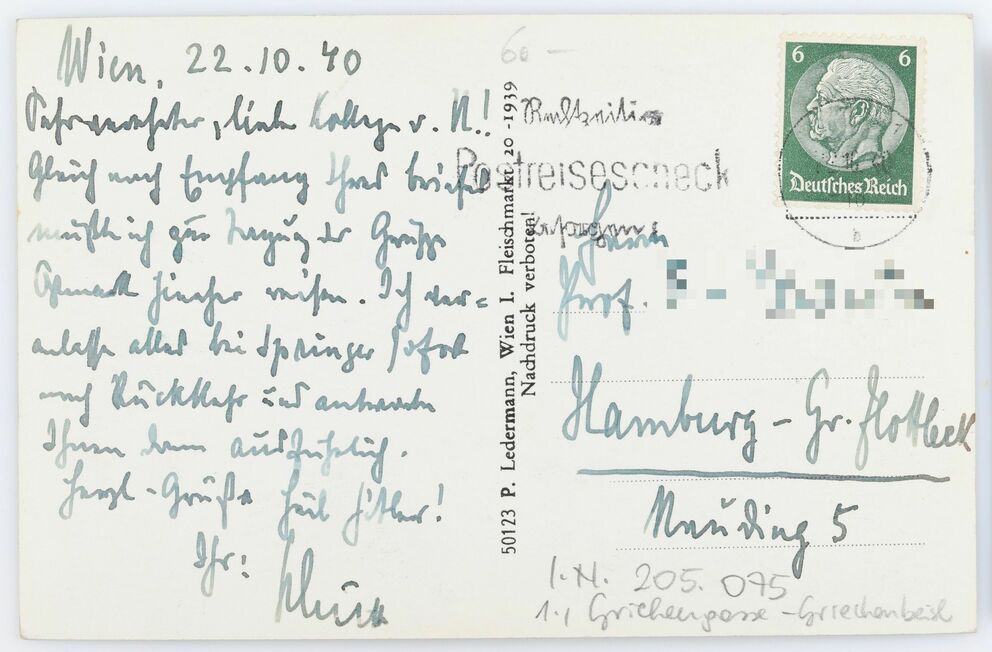 Wien, 22.10.40
Sehrverehrter, lieber Kollege v. N.!
Gleich nach Empfang Ihres Briefes
mußte ich zur Tagung der Gruppe
Ostmark hierher reisen. Ich ver=
anlasse alles bei Springer sofort
nach Rückkehr und antworte
Ihnen dann ausführlich.
Herzl-Grüße Heil Hitler!
Ihr:
50123 P. Ledermann, Wien I. Fleischmarkt 20 -1939
Nachdruck verboten!
60 —
Rechtzeitig
Postreisescheck
besorgen
6 6
Deutsches Reich
b
Herrn
Prof.
Hamburg - Gr. Flottbek
5
I.N. 205.075
1., Griechengasse - Griechenbeisl